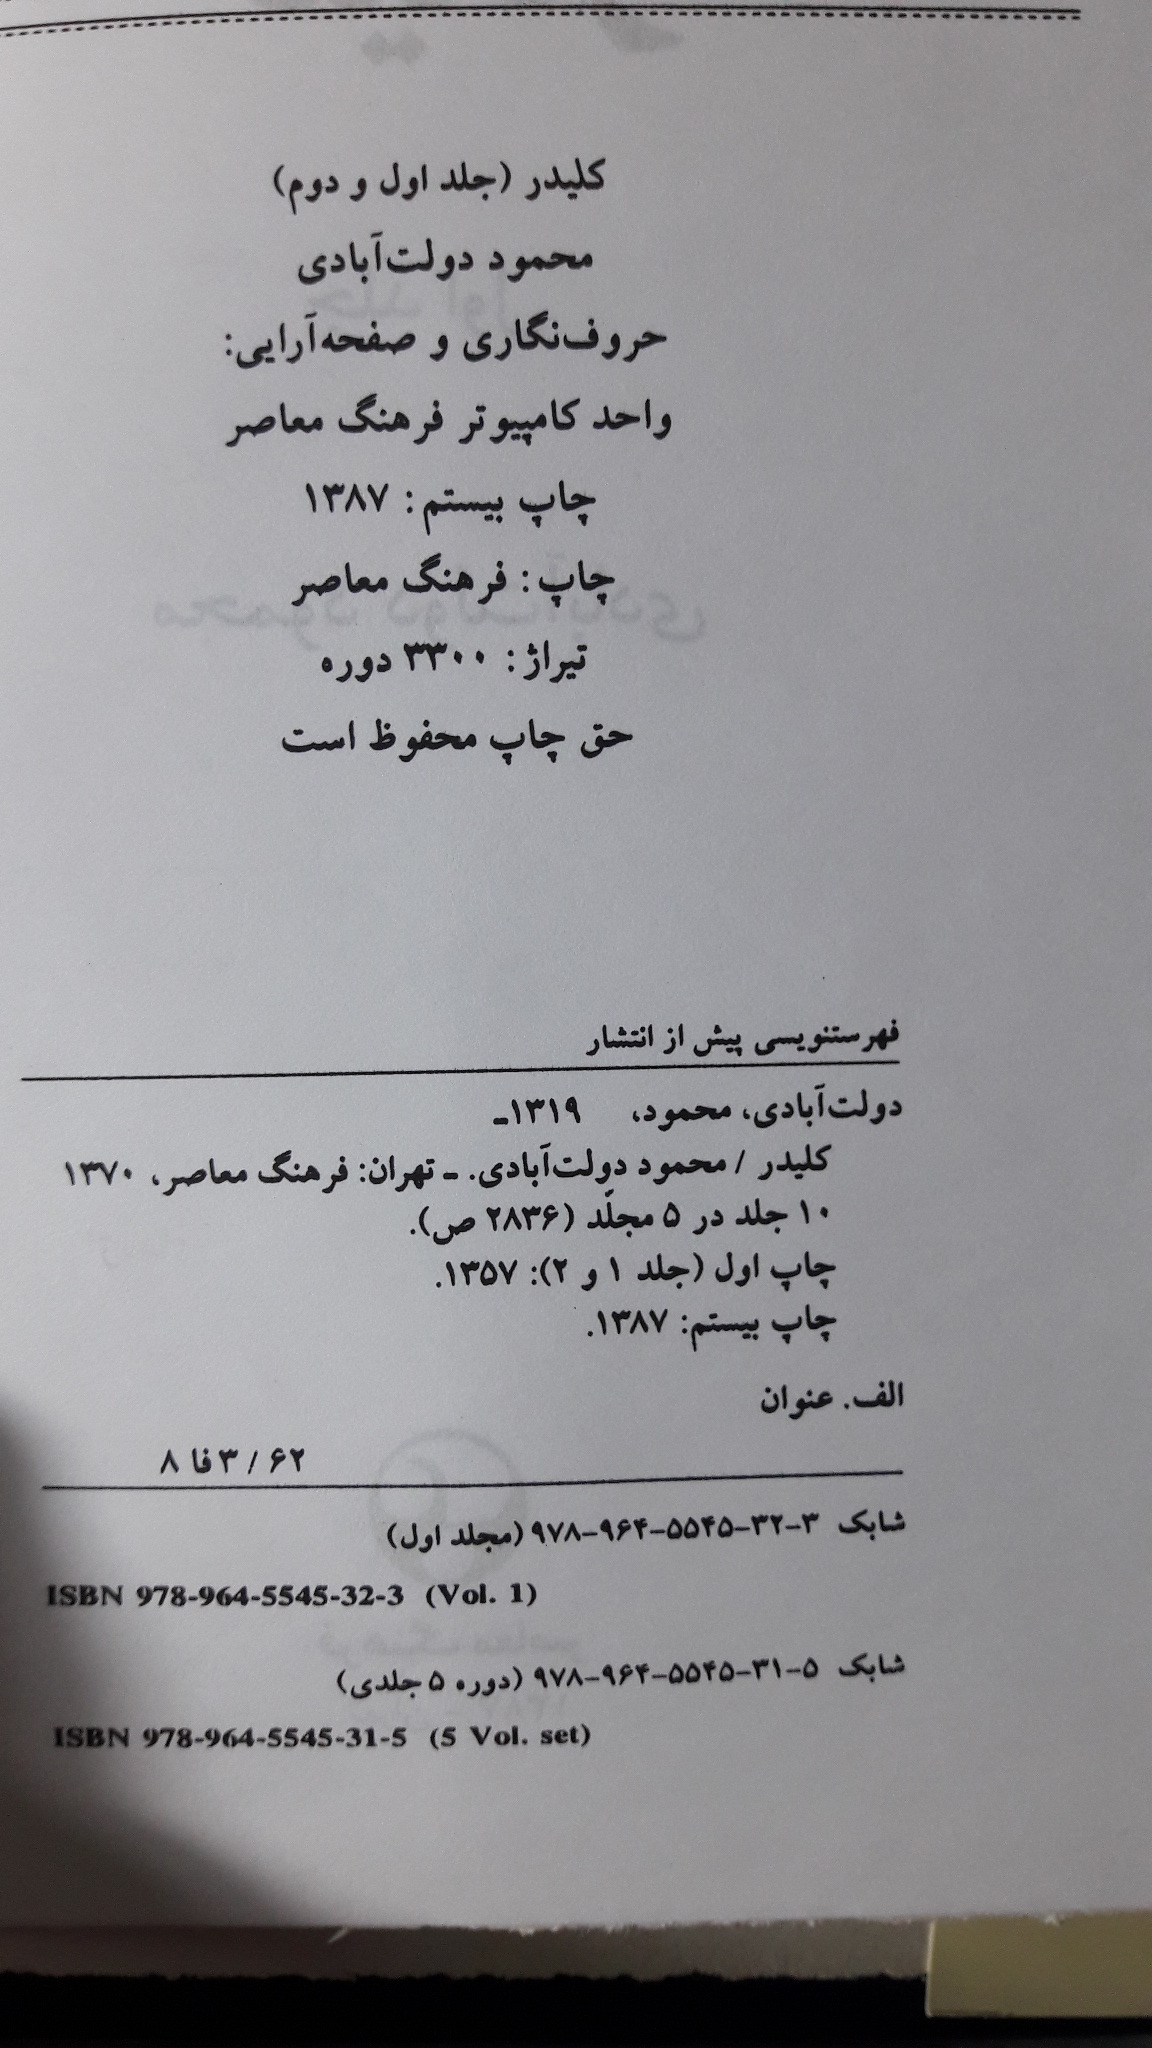 کلیدر (جلد اول و دوم)
محمود دولت‌آبادی
حروف‌نگاری و صفحه‌آرایی:
واحد کامپیوتر فرهنگ معاصر
چاپ بیستم: ۱۳۸۷
چاپ: فرهنگ معاصر
تیراژ: ۳۳۰۰ دوره
حق چاپ محفوظ است
فهرستنویسی پیش از انتشار
دولت‌آبادی، محمود، ۱۳۱۹ـ
کلیدر / محمود دولت‌آبادی. ـ تهران: فرهنگ معاصر، ۱۳۷۰
۱۰ جلد در ۵ مجلّد (۲۸۳۶ ص).
چاپ اول (جلد ۱ و ۲): ۱۳۵۷.
چاپ بیستم: ۱۳۸۷.
الف. عنوان
۸ فا ۳ / ۶۲
شابک ۳-۳۲-۵۵۴۵-۹۶۴-۹۷۸ (مجلد اول)
ISBN 978-964-5545-32-3 (Vol. 1)
شابک ۵-۳۱-۵۵۴۵-۹۶۴-۹۷۸ (دوره ۵ جلدی)
ISBN 978-964-5545-31-5 (5 Vol. set)